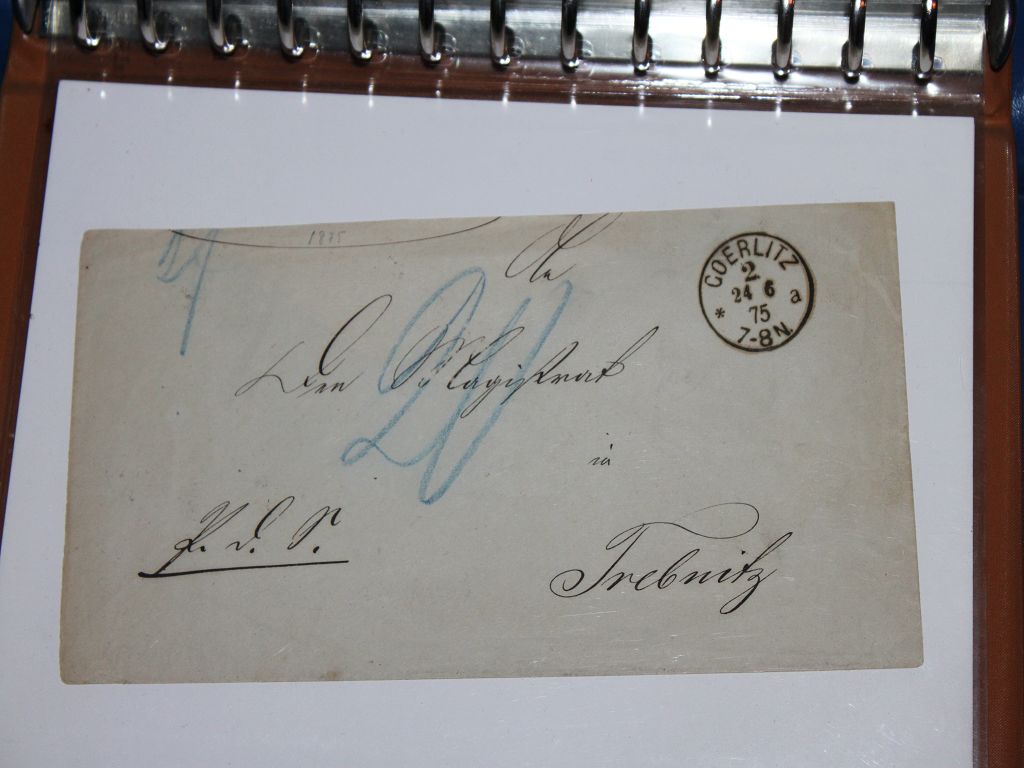 1875
An
Den Magistrat
in
Trebnitz
P. d. S.
20
GOERLITZ
2
24 6
75
* a
7-8N.